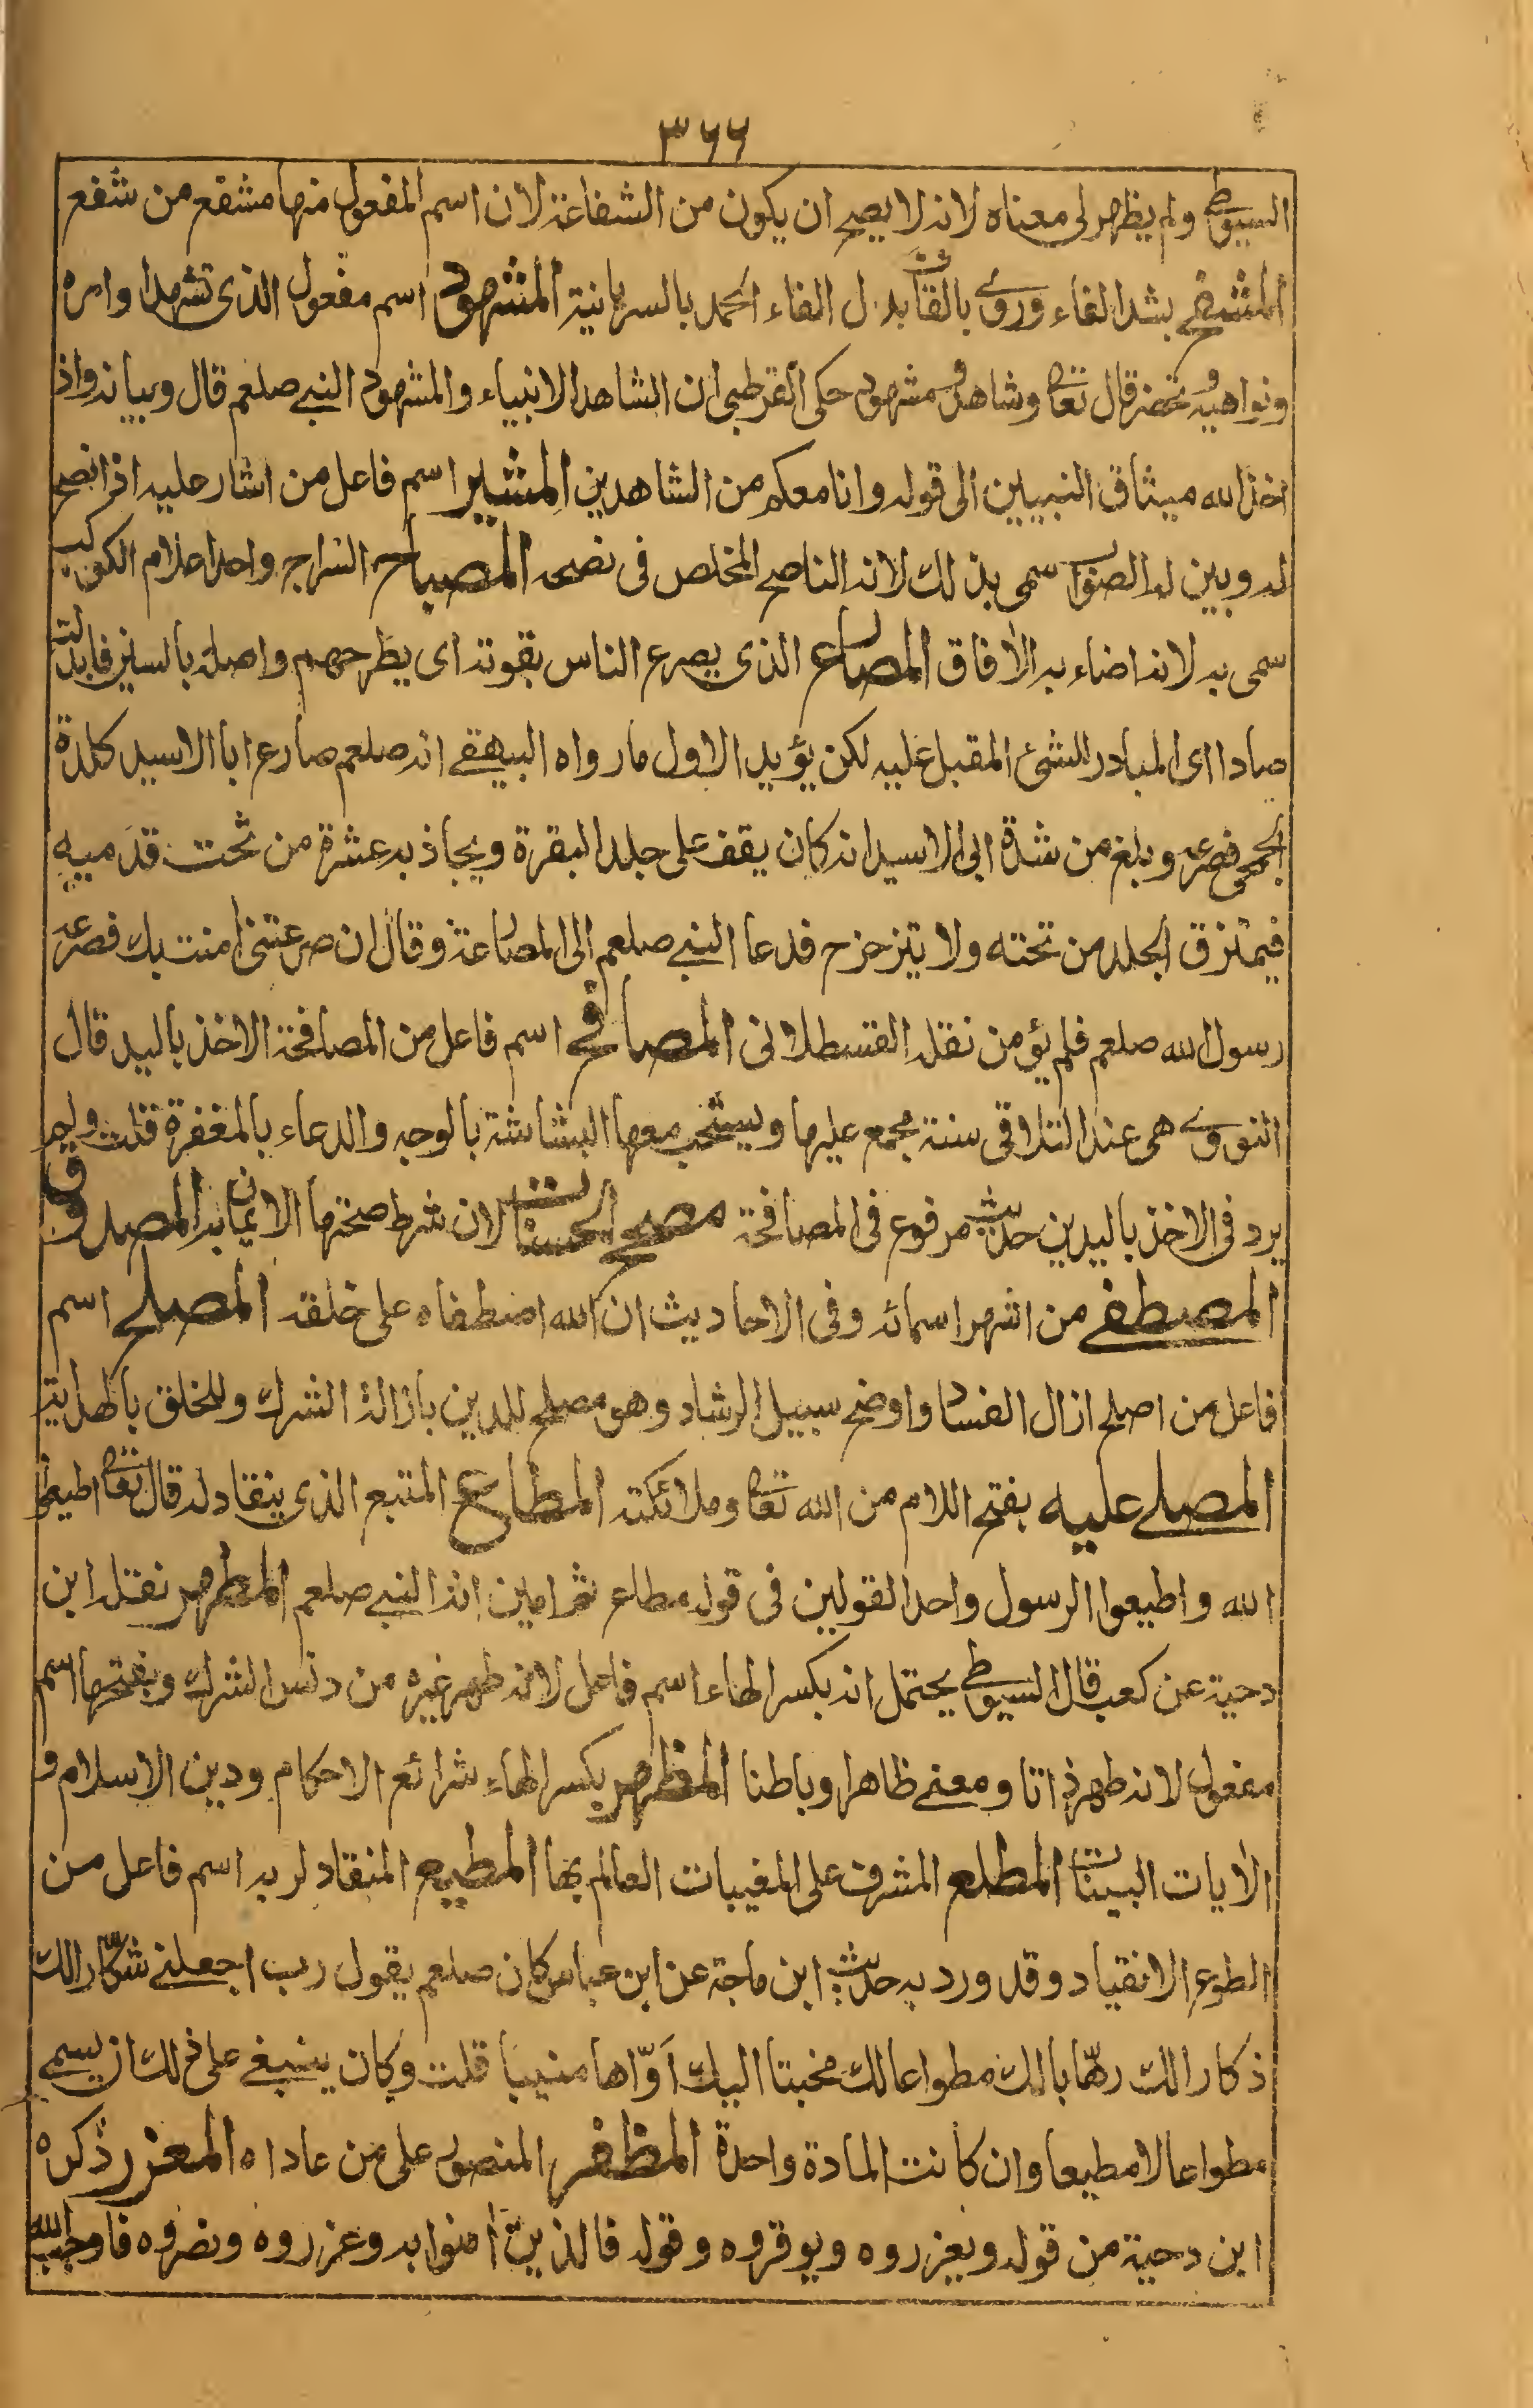 ٣٦٦
السيوطى ولم يظهر لى معناه لانه لا يصح ان يكون من الشفاعة لان اسم المفعول منها مشفع من شُفع
المشفح بشد الفاء وروى بالقاف بدل الفاء الحمد بالسريانية المشهود اسم مفعول الذى تشهد اوامره
ونواهيه وتحضر قال تعالى وشاهد ومشهود حكى القرطبى ان الشاهد الانبياء والمشهود النبى صلعم قال وبيانه واذ
اخذ الله ميثاق النبيين الى قوله وانا معكم من الشاهدين المشير اسم فاعل من اشار عليه اذا نصح
له وبين له الصواب سمى بذلك لانه الناصح المخلص فى نصحه المصباح السراج واحد اعلام الكواكب
سمى به لانه اضاء به الافاق المصارع الذى يصرع الناس بقوته اى يطرحهم واصله بالسين فابدلت
صادا اى المبادر للشئ المقبل عليه لكن يؤيد الاول ما رواه البيهقى انه صلعم صارع ابا الاسيد كلدة
الجمحى فصرعه وبلغ من شدة ابى الاسيد انه كان يقف على جلد البقرة ويجاذبه عشرة من تحت قدميه
فيمتزق الجلد من تحته ولا يتزحزح فدعا النبى صلعم الى المصارعة وقال ان صرعتنى امنت بك فصرعه
رسول الله صلعم فلم يؤمن نقله القسطلانى المصافح اسم فاعل من المصافحة الاخذ باليد قال
النووى هى عند التلاقى سنة مجمع عليها ويستحب معها البشاشة بالوجه والدعاء بالمغفرة قلت ولم
يرد فى الاخذ باليدين حديث مرفوع فى المصافحة مصحح الحسنات لان شرط صحتها الايمان به المصدوق
المصطفى من اشهر اسمائه وفى الاحاديث ان الله اصطفاه على خلقه المصلح اسم
فاعل من اصلح ازال الفساد واوضح سبيل الرشاد وهو مصلح للدين بازالة الشرك وللخلق بالهداية
المصلى عليه بفتح اللام من الله تعالى وملائكته المطاع المتبع الذى ينقاد له قال تعالى اطيعوا
الله واطيعوا الرسول واحد القولين فى قوله مطاع ثم امين انه النبى صلعم المطهر نقله ابن
دحية عن كعب قال السيوطى يحتمل انه بكسر الهاء اسم فاعل لانه طهر غيره من دنس الشرك وبفتحها اسم
مفعول لانه طهر ذاتا ومعنى ظاهرا وباطنا المظهر بكسر الهاء شرائع الاحكام ودين الاسلام و
الايات البينات المطلع المشرف على المغيبات العالم بها المطيع المنقاد لربه اسم فاعل من
الطوع الانقياد وقد ورد به حديث ابن ماجة عن ابن عباس كان صلعم يقول رب اجعلنى شكّارا لك
ذكارا لك رهّابا لك مطواعا لك مخبتا اليك اوّاها منيبا قلت وكان ينبغى على ذلك ان يسمى
مطواعا لا مطيعا وان كانت المادة واحدة المظفر المنصور على من عاداه المعزر ذكره
ابن دحية من قوله ويعزروه ويوقروه وقوله فالذين امنوا به وعزروه ونصروه فاوجب الله